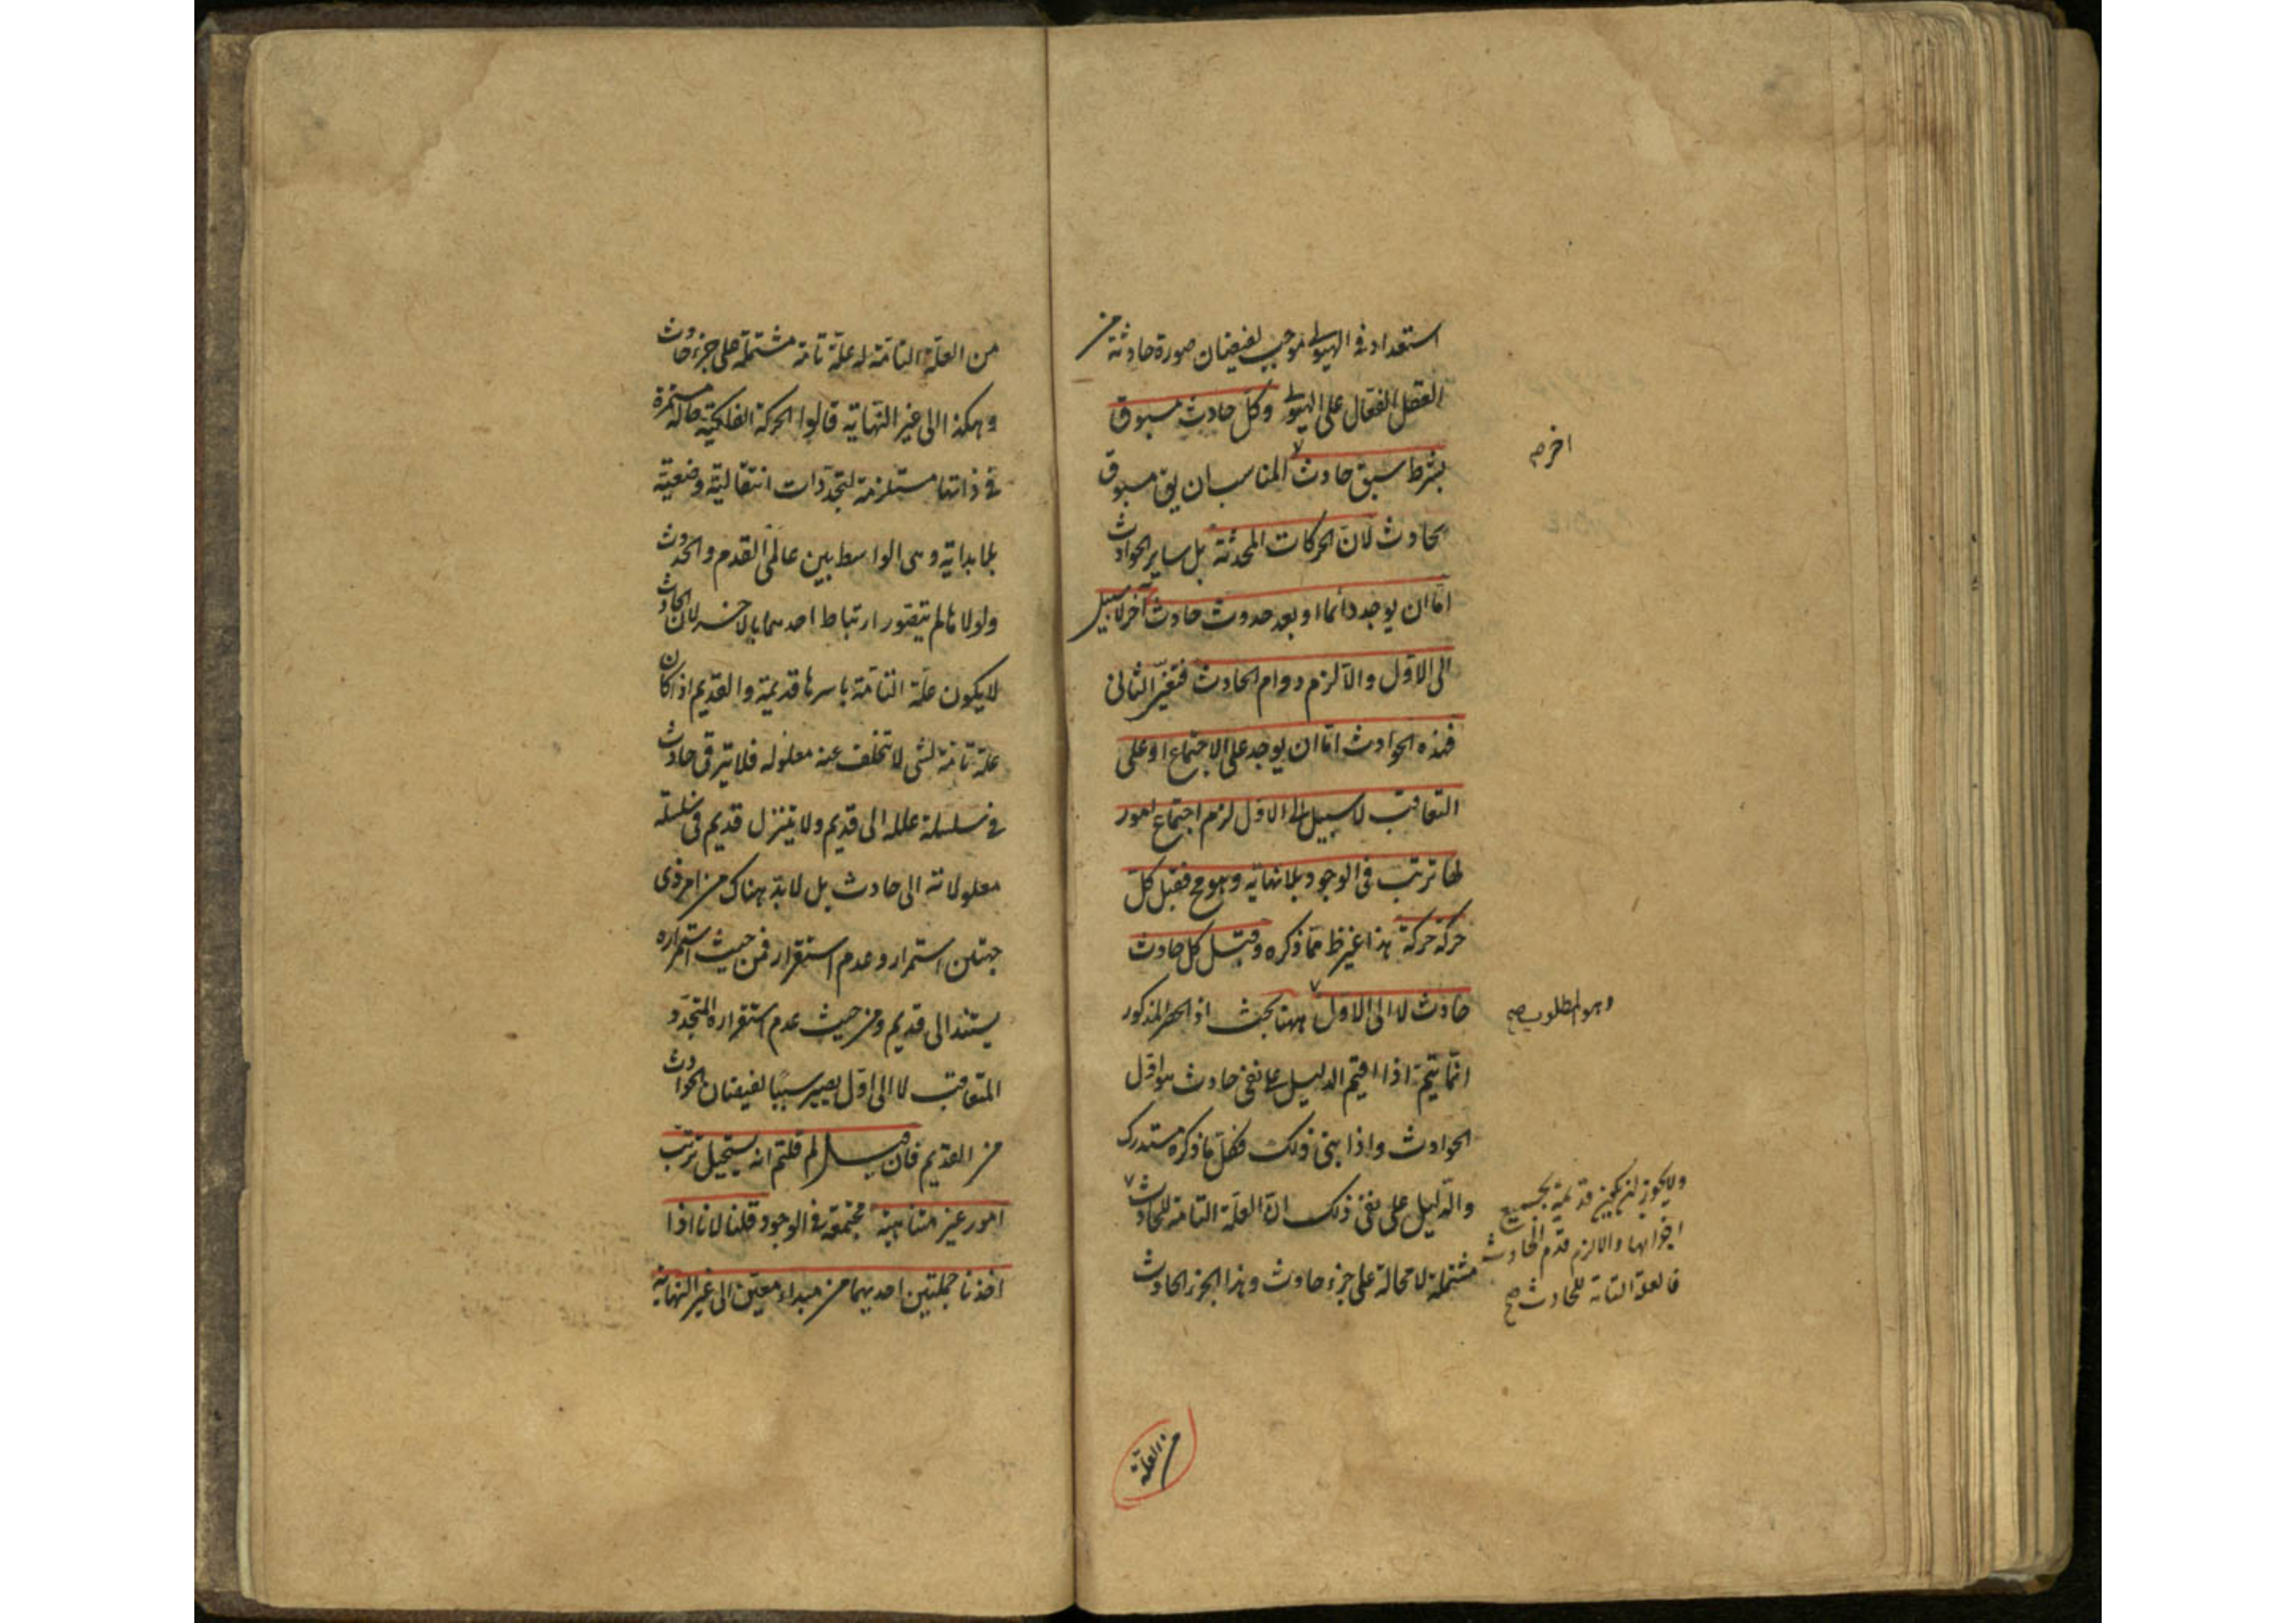 استعداد فى الهيولى موجب لفيضان صورة حادثة من
العقل الفعال على الهيولى وكل حادث مسبوق
بشرط سبق حادث المناسب ان يق مسبوق
اخر صح
بحادث لان الحركات المحدثة بل ساير الحوادث
اما ان يوجد دائما او بعد حدوث حادث آخر لا سبيل
الى الاول والا لزم دوام الحادث فتعين الثانى
فهذه الحوادث اما ان يوجد على الاجتماع او على
التعاقب لا سبيل الى الاول لزم اجتماع امور
لها ترتب فى الوجود بلا نهاية وهو مح فقبل كل
حركة حركة هذا غير ظ مما ذكره وقبل كل حادث
حادث لا الى الاول ههنا بحث اذ الحصر المذكور
وهو المطلوب صح
انما يتم اذا اقيم الدليل على نفى حادث هو اول
الحوادث واذا بنى ذلك فكل ما ذكره مستدرك
والدليل على نفى ذلك ان العلة التامة للحادث
مشتملة لا محالة على جزء حادث وهذا الجزء الحادث
ولا يجوز ان يكون قديمة بجميع
اجزائها والا لزم قدم الحادث
فالعلة التامة للحادث صح
من العلة
من العلة التامة له علة تامة مشتملة على جزء حادث
وهكذا الى غير النهاية قالوا الحركة الفلكية حالة مستمرة
فى ذاتها مستلزمة لتجددات انتقالية وضعية
بلا بداية وهى الواسط بين عالمى القدم والحدوث
ولولاها لم يتصور ارتباط احدهما بالاخر لان الحادث
لا يكون علة التامة باسرها قديمة والقديم اذا كان
علة تامة لشى لا تخلف عنه معلوله فلا يترقى حادث
فى سلسلة علله الى قديم ولا يتنزل قديم فى سلسلة
معلولاته الى حادث بل لا بد هناك من امر ذى
جهتين استمرار وعدم استقرار فمن حيث استمراره
يستند الى قديم ومن حيث عدم استقراره المتجدد
المتعاقب لا الى اول يصير سببا لفيضان الحوادث
من القديم فان قيل لم قلتم انه يستحيل ترتب
امور غير متناهية مجتمعة فى الوجود قلنا لانا اذا
اخذنا جملتين احديهما من مبداء معين الى غير النهاية